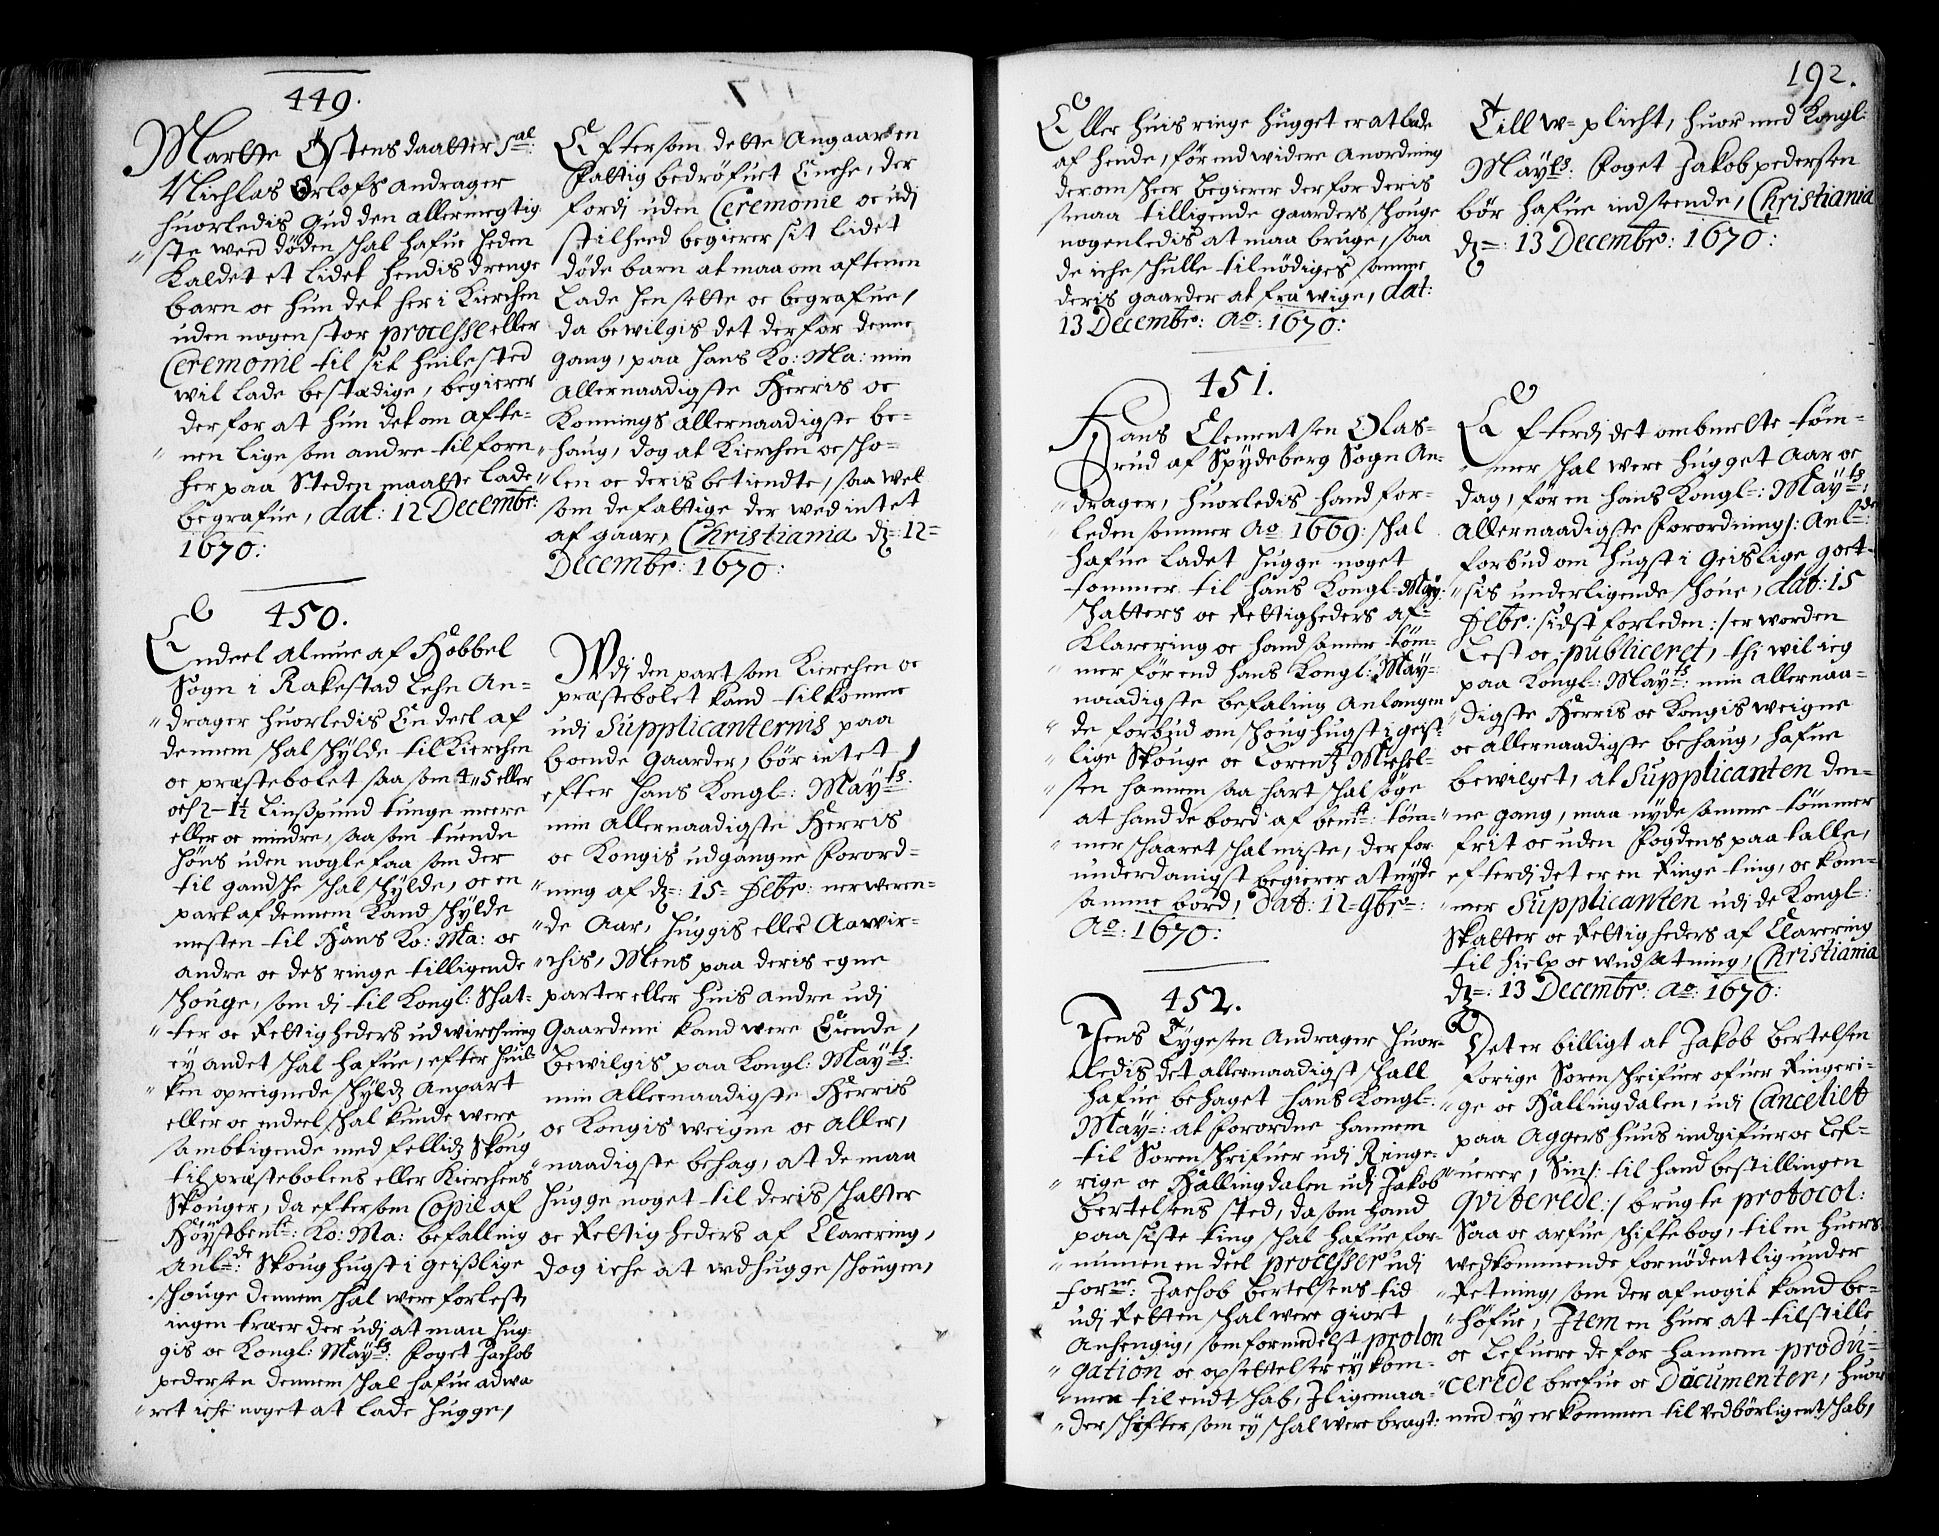 449.
Martte Østensdaatter Sal:
Nichlas Orlofs andrager
huorledis Gud den allermegtig
ste wed døden schal hafue heden
Kaldet et lidet hendis drenge
barn oc hun det her i Kierchen
uden nogen stor processe eller
Ceremonie til sit huilested
wil lade bestædige, begierer
derfor at hun det om afte-
nen lige som andre tilforn
her paa Steden maatte lade
begrafue, dat: 12 Decembr:
1670:
Eftersom dette Angaar en
fattig bedröfuet Enche, der
fordj uden Ceremonie oc udj
stilhed begierer sit lidet
döde barn at maa om aftenen
Lade hensette oc begrafue,
da bewilgis det derfor denne
gang, paa hans Ko: Ma: min
allernaadigste Herris oc
Konnings allernaadigste be-
haug, dog at Kierchen oc scho-
len oc deris betiendte, saa wel
som de fattige der wed intet
af gaar, Christiania dz: 12=
Decembr: 1670:
450.
Endeel Almue af Hobbel
Sogn i Rakestad Lehn An-
drager huorledis En deel af
dennem schal schylde til Kierchen
oc præstebolet saa som 4 " 5 eller
och 2 - 1½ Lisspund tunge meere
eller oc mindre, saa som tuende
höns uden nogle faa som der
til gandsche schal schylde, oc en
part af dennem Kand schylde
mesten til Hans Ko: Ma: oc
andre oc des ringe tilligende
schouge, som dj til Kongl: Schat-
ter oc Rettigheders udwirchning
ey andet schal hafue, efter huil
ken opreignede schyldz Anpart
eller oc endeel schal kunde were
sambtigende med fellidz Skoug
til præstebolens eller Kierchens
Skouger, da eftersom Copie af
Höystbemte: Ko: Ma: befalling
Anlde: Skoug hugst i geistlige
schouge dennem schal were forlest,
ingen træer der udj at maa hug-
gis oc Kongl: Mayts: foget Jachob
pedersen dennem schal hafue adwa
ret iche noget at lade hugge,
Udj den part som Kierchen oc
præstebolet kand tilkomme
udi Supplicanternis paa
boende Gaarder, bör intet
efter Hans Kongl: Mayts:
min Allernaadigste Herris
oc Kongis udgangne Forord-
ning af dz: 15= 8br: nerweren-
de Aar, huggis eller Aarwir-
chis, Mens paa deris egne
parter eller huis andre udj
Gaardene kand were Eiende,
Bewilgis paa Kongl: Mayts:
min Allernaadigste Herris
oc Kongis weigne oc Aller,
naadigste behag, at de maa
hugge noget til deris schatter
oc Rettigheders af Clarering,
dog iche at udhugge schougen,
192.
Eller huis ringe hugget er at lade
af hende, förend widere Anordning
derom scheer begierer derfor deris
smaa tilligende gaarders schouge
nogenledis at maa bruge, saa
de iche schulle tilnödiges samme
deris gaarder at fra wige, dat:
13 Decembr: Ao: 1670:
Till w=plicht, huor med Kongl:
Mayts: foget Jakob pedersen
bör hafue indseende, Christiania
dz=: 13 Decembr: 1670:
451.
Hans Clementsen Olas-
rud af Spydeberg Sogn An-
drager, huorledis hand for-
leden sommer Ao 1669: schal
hafue ladet hugge noget
tommer til Hans Kongl: May:
schatters oc Rettigheders af-
Klarering oc hand samme töm-
mer förend Hans Kongl: May-
naadigste befaling Anlangen
de forbud om schoug hugst i geist-
lige Skouge oc Lorentz Michel-
sen hannem saa hart schal söge
at hand de bord af bemte: töm-
mer schaaret schal miste, derfor
underdanigst begierer at nyde
samme bord, Dat: 12= 9br=:
Ao: 1670:
Efterdj det ombmelte töm-
mer schal were hugget Aar oc
dag, för en Hans Kongl=: Mayts:
Allernaadigste Forordning /: Anlde:
forbud om hugst i Geislige godt-
sis underligende schoue, dat: 15
8br: sidst forleden :/ er worden
Lest oc publiceret, thi wil ieg
paa Kongl: Mayts: min allernaa-
digste Herris oc Kongis weigne
oc allernaadigste behaug, hafue
bewilget, at Supplicanten den-
ne gang, maa nyde samme tömmer
frit oc uden Fogdens paa talle,
efterdj det er en Ringe ting, oc kom-
mer Supplicanten udi de Kongl=:
Skatter oc Rettigheders af Clarering
til hielp oc undsætning, Christiania
dz=: 13 Decembr: Ao: 1670:
452.
Jens Tygesen Andrager huor-
ledis det allernaadigst schall
hafue behaget Hans Kongl=:
May=: at Forordne hannem
til Sorenschrifuer udj Ringe-
rige oc Hallingdalen udj Jakob
Bertelsens sted, da som hand
paa siste ting schal hafue for-
nummen en deel processer udj
forne: Jachob Bertelsens tid
udj Retten schal were giort
Anhengig, som formedelst prolon
gation oc opsettelser ey kom-
men til endtschab, Iligemaa-
der schifter som ey schal were bragt:
Det er billigt at Jakob Bertelsen
forige Sorenschrifuer ofuer Ringeri-
ge oc Hallingdalen, udj Canceliet
paa Aggershuus indgifuer oc lef-
uerer, Sin /: til hand bestillingen
qviterede :/ brugte protocol:
Saa oc arfue schifte bog, til en huers
wedkommende fornödentlig under
Retning, som der af nogit kand be-
höfue, Item en huer at tilstille
oc lefuere de for hannem produ-
cerede brefue oc Documenter, huor
med ey er kommen til ved börlig entschab,